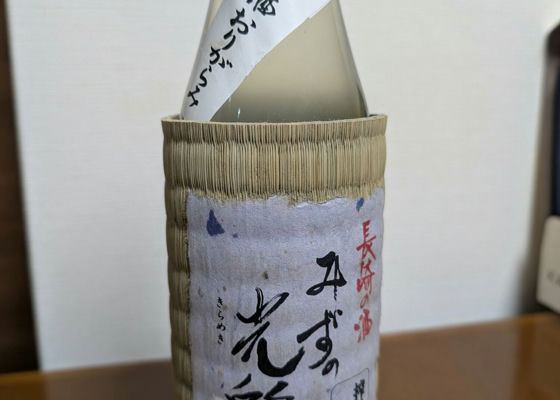 おりがらみ
長崎の酒
みずの
光
きらめき